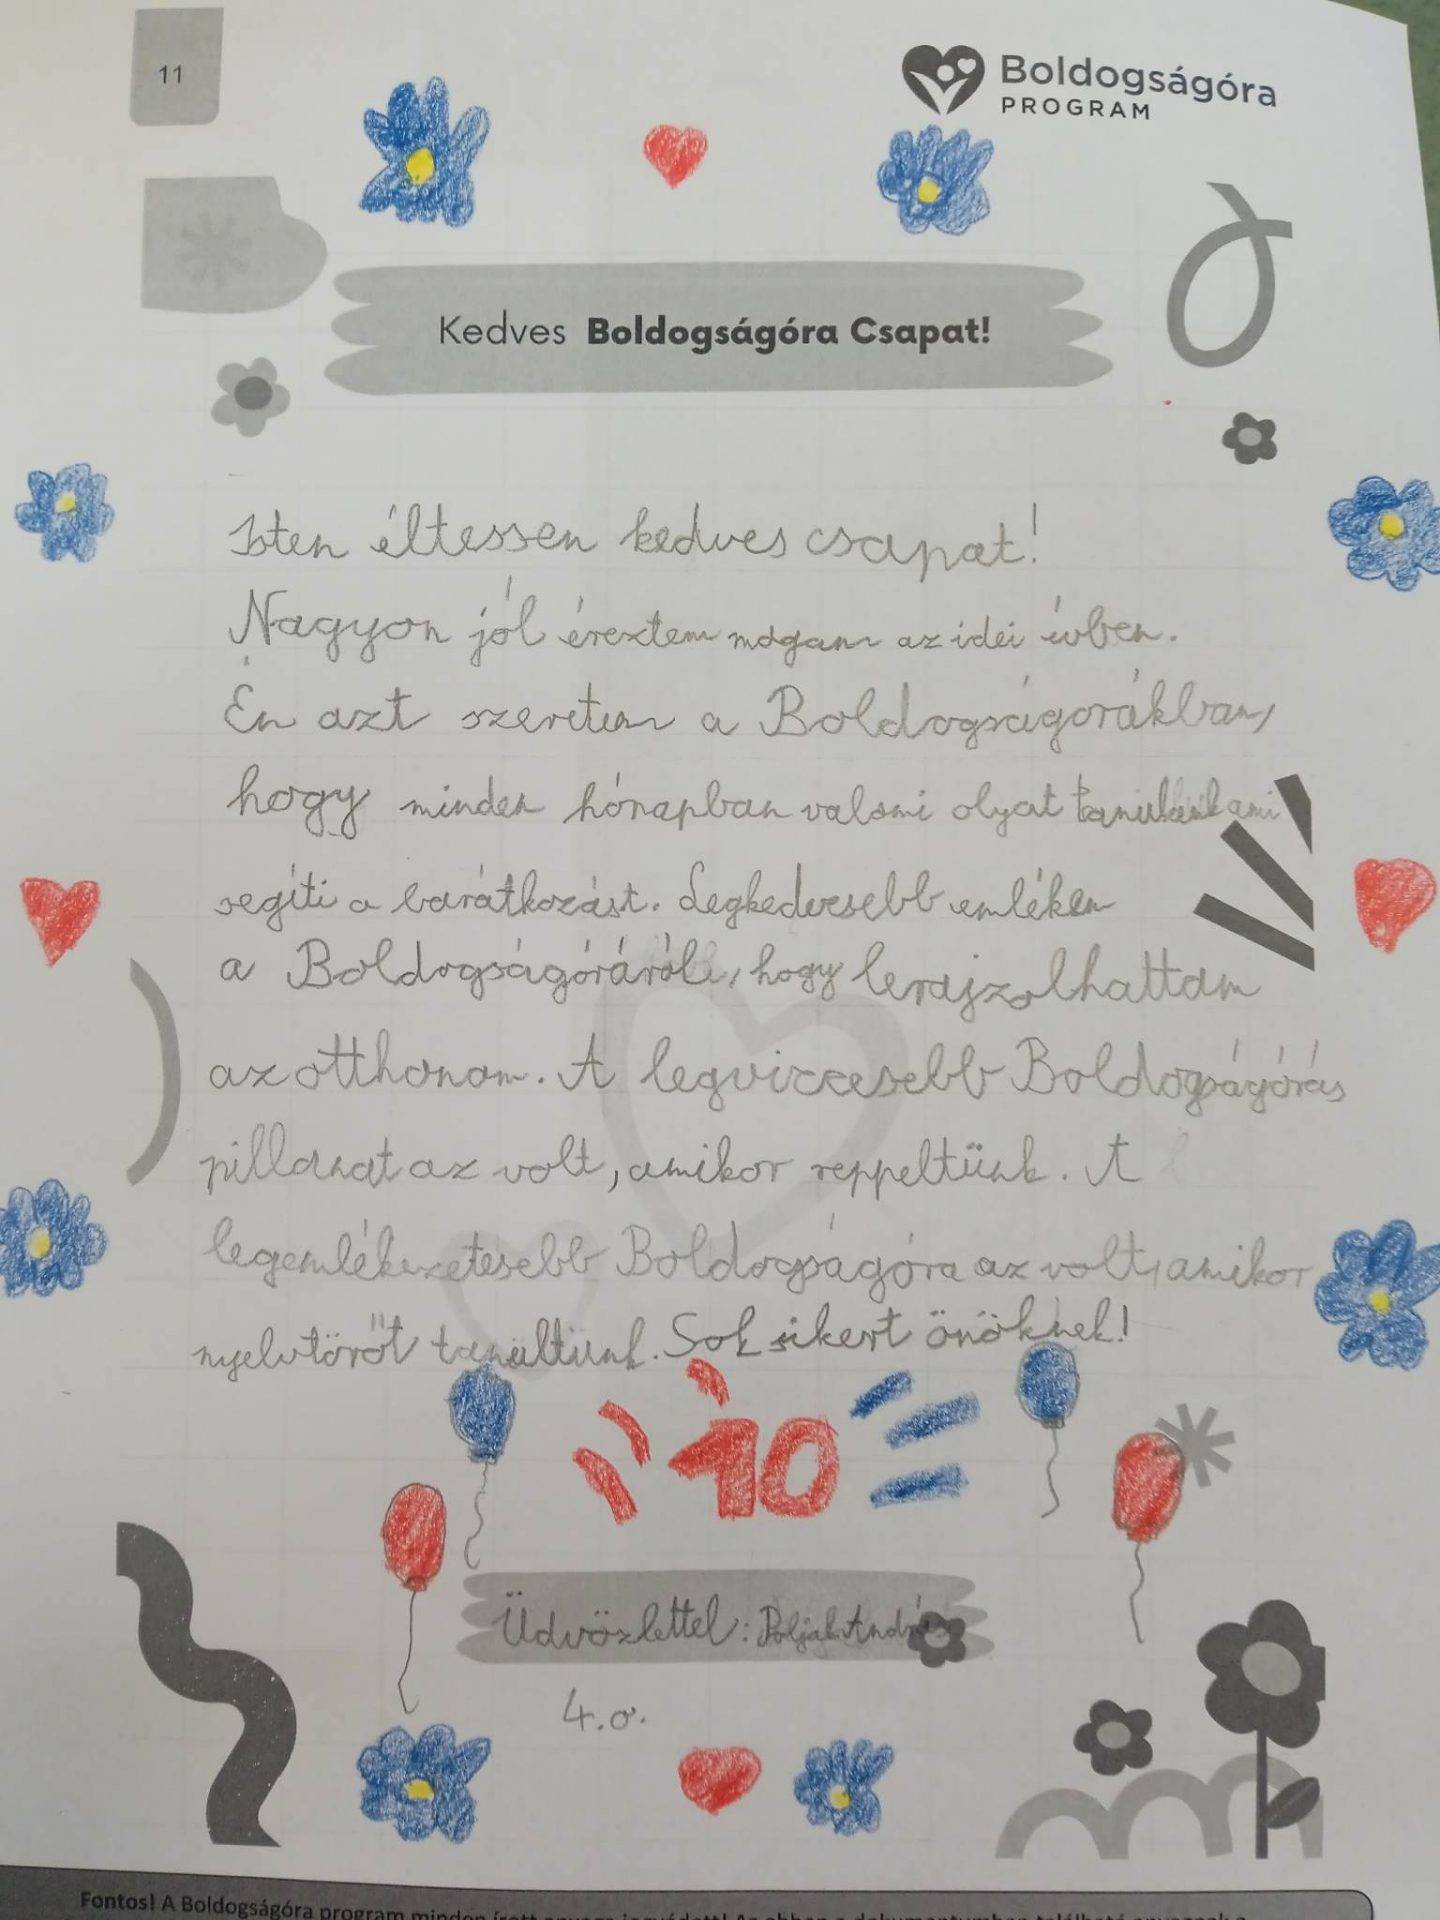 11
Boldogságóra
PROGRAM
Kedves Boldogságóra Csapat!
Isten éltessen kedves csapat!
Nagyon jól éreztem magam az idei évben.
Én azt szeretem a Boldogságorákban,
hogy minden hónapban valami olyat tanulunk ami
segíti a barátkozást. Legkedvesebb emlékem
a Boldogságóráról, hogy lerajzolhattam
az otthonom. A legviccesebb Boldogságórás
pillanat az volt, amikor reppeltünk. A
legemlékezetesebb Boldogságóra az volt, amikor
nyelvtörőt tanultunk. Sok sikert önöknek!
10
Üdvözlettel: András
4.o.
Fontos! A Boldogságóra program minden írott anyaga jogvédett!